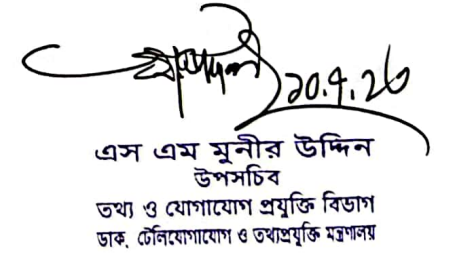 ২০.৭.২৩
এস এম মুনীর উদ্দিন
উপসচিব
তথ্য ও যোগাযোগ প্রযুক্তি বিভাগ
ডাক, টেলিযোগাযোগ ও তথ্যপ্রযুক্তি মন্ত্রণালয়